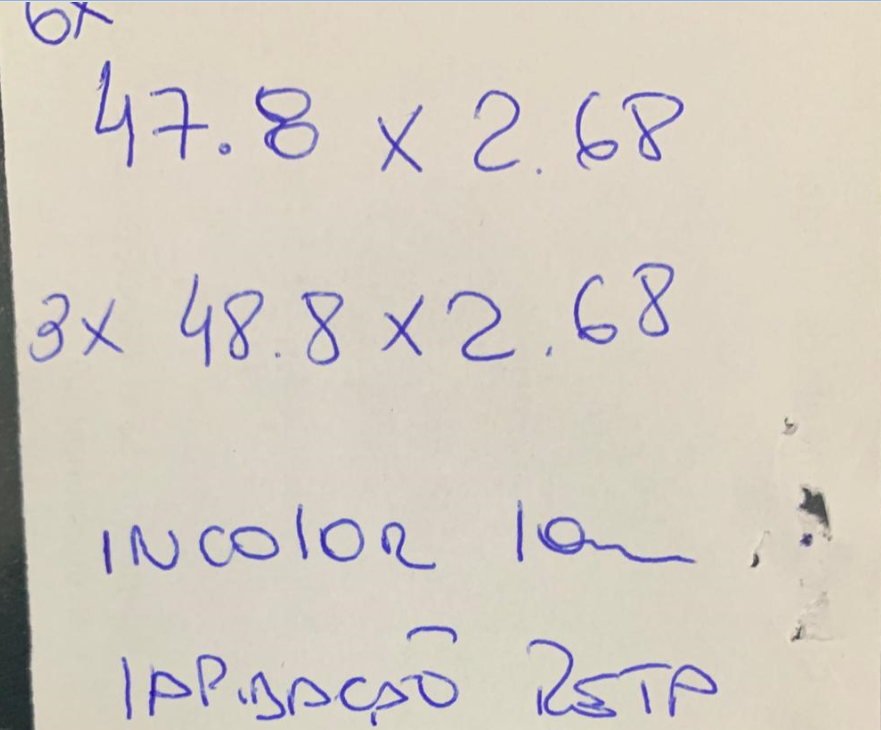 6x
47.8 x 2.68
3x 48.8 x 2.68
INCOLOR 10m
LAPIDAÇÃO RETA